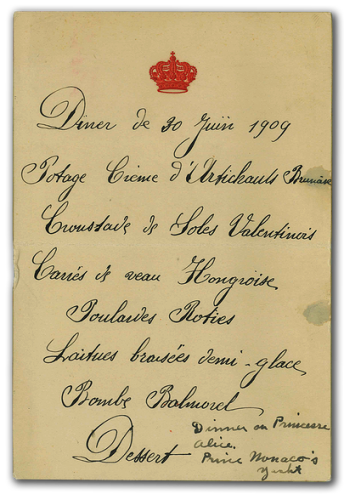 Diner de 30 Juin 1909
Potage Crème d'Artichauts Brunoise
Croustade de Soles Valentinois
Carrés de veau Hongroise
Poulardes Roties
Laitues braisées demi-glace
Bombe Balmorel
Dessert
Dinner on Princesse
Alice.
Prince Monaco's
yacht